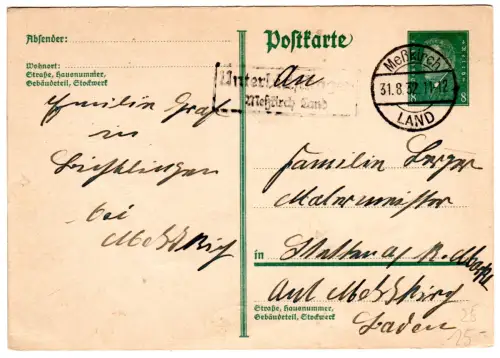 Absender:
Wohnort:
Straße, Hausnummer,
Gebäudeteil, Stockwerk
Emilie Graf
in
Bichtlingen
bei
Messkirch
Postkarte
Meßkirch
31.8.32.11-12
LAND
8 8
Meßkirch Land
An
Familie Berger
Malermeister
in Stetten a/ k. M.
Amt Messkirch
Baden
Straße, Hausnummer,
Gebäudeteil, Stockwerk
25
25-